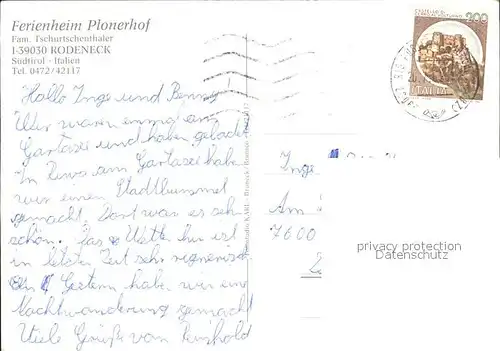 Ferienheim Plonerhof
Fam. Tschurtschenthaler
I-39030 RODENECK
Südtirol - Italien
Tel. 0472/42117
300
ITALIA
Hallo Inge und Benny!
Wir waren einmal am
Gartasee und haben gebadet
In Riwa am Gartasee haben
wir einen Stadtbummel
gemacht. Dort war es sehr
schön. Das Wetter hir ist
in letzter Zeit sehr regnerisch.
Gestern haben wir eine
Nachtwanderung gemacht
Viele Grüße von Reinhold
Inge
Am
7600
privacy protection
Datenschutz